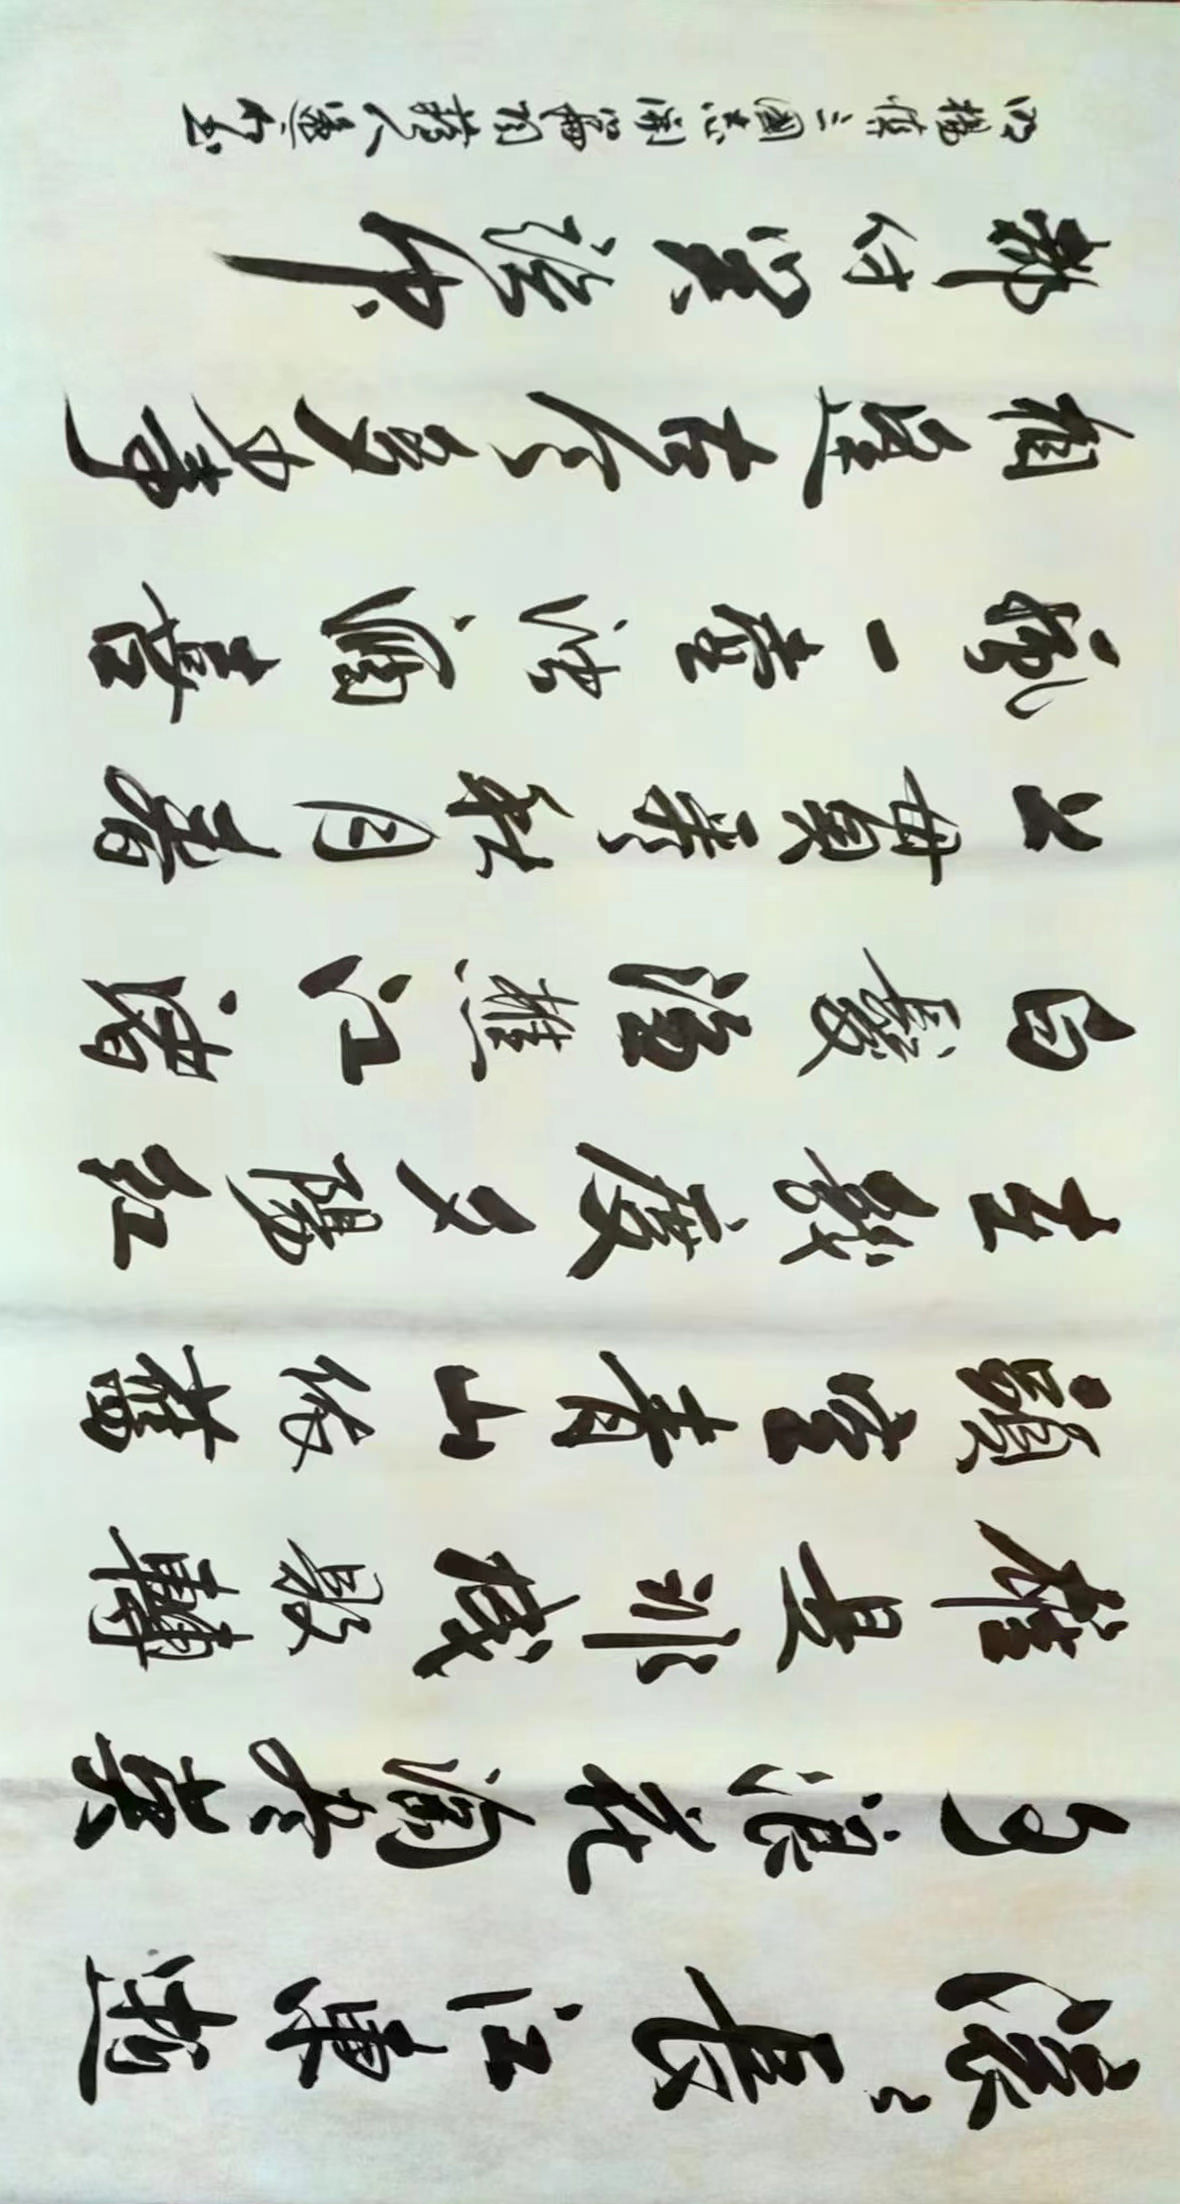 滚〻長江東逝
水浪花淘盡英
雄是非成敗轉
頭空青山依舊
在幾度夕陽紅
白髮漁樵江渚
上慣看秋月春
風一壺浊酒喜
相逢古今多少事
都付笑談中
明楊慎三國志開篇詞